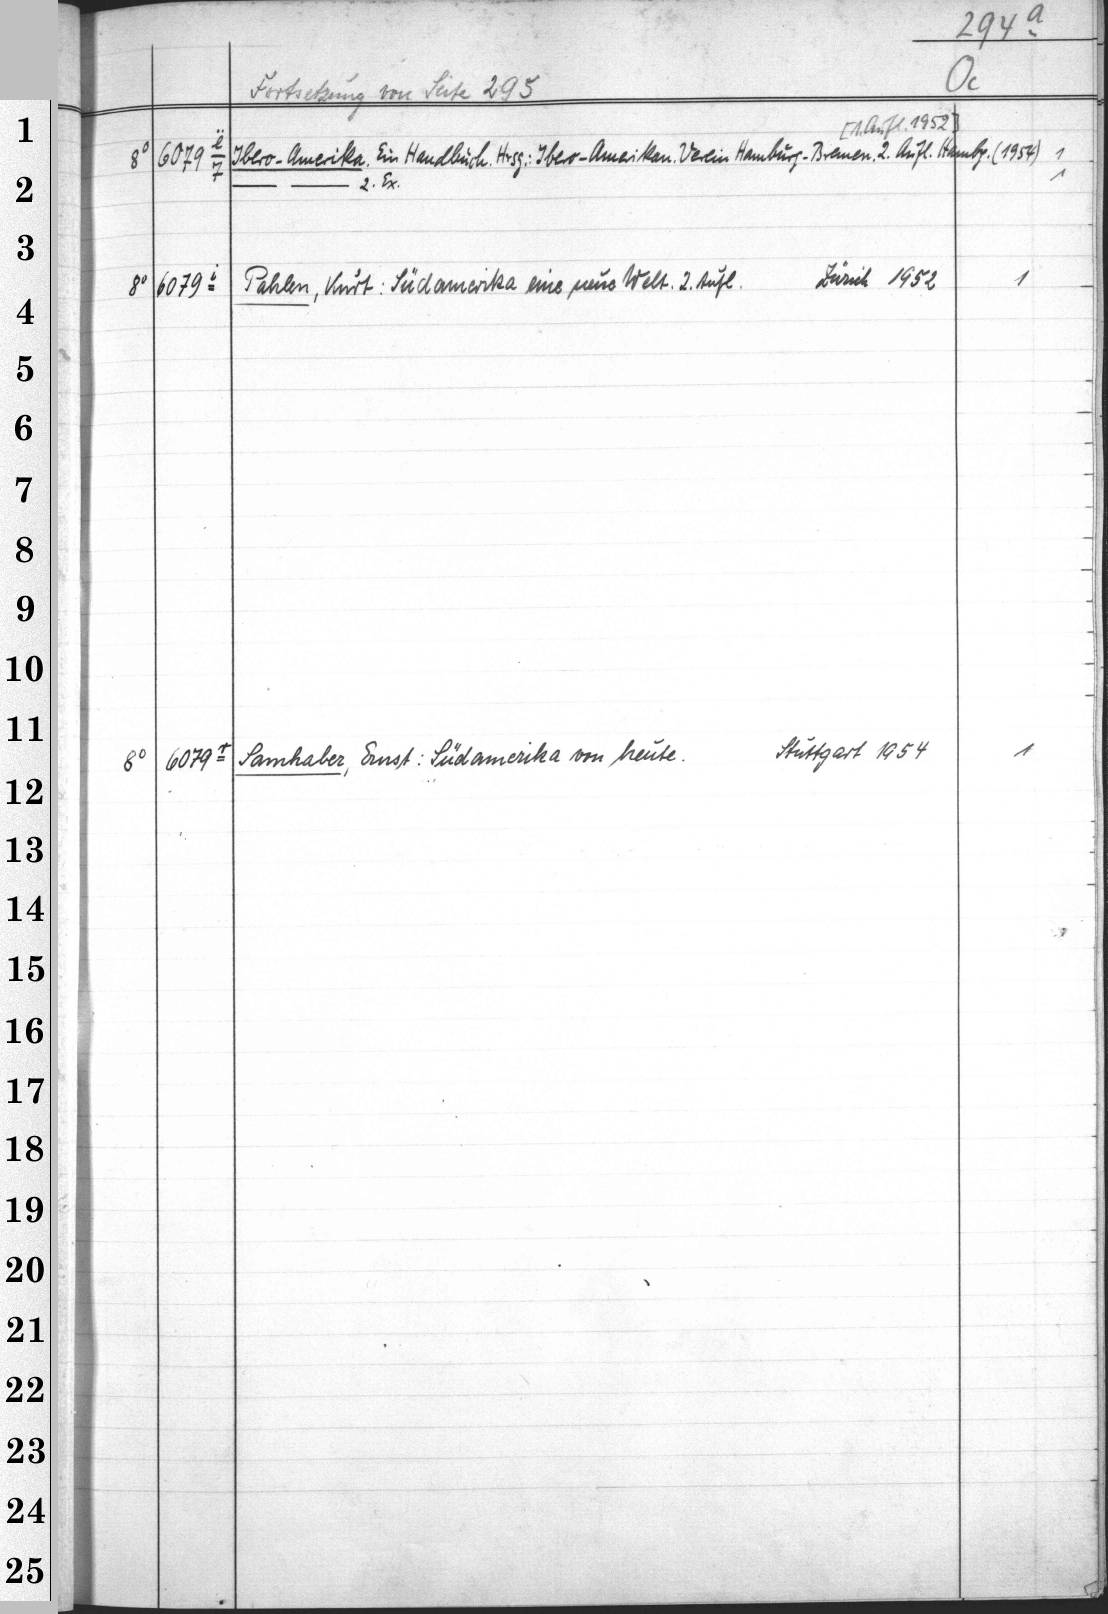 294 a
Oc
Fortsetzung von Seite 295
1
[1. Aufl. 1952]
8° 6079 Ibero-Amerika. Ein Handbuch. Hrsg.: Ibero-Amerikan. Verein Hamburg-Bremen. 2. Aufl. Hambg. (1954) 1
2
7 — — 2. Ex. 1
3
8° 6079 i Pahlen, Kurt: Südamerika eine neue Welt. 2. Aufl. Zürich 1952 1
4
5
6
7
8
9
10
11
8° 6079 r Samhaber, Ernst: Südamerika von heute. Stuttgart 1954 1
12
13
14
15
16
17
18
19
20
21
22
23
24
25